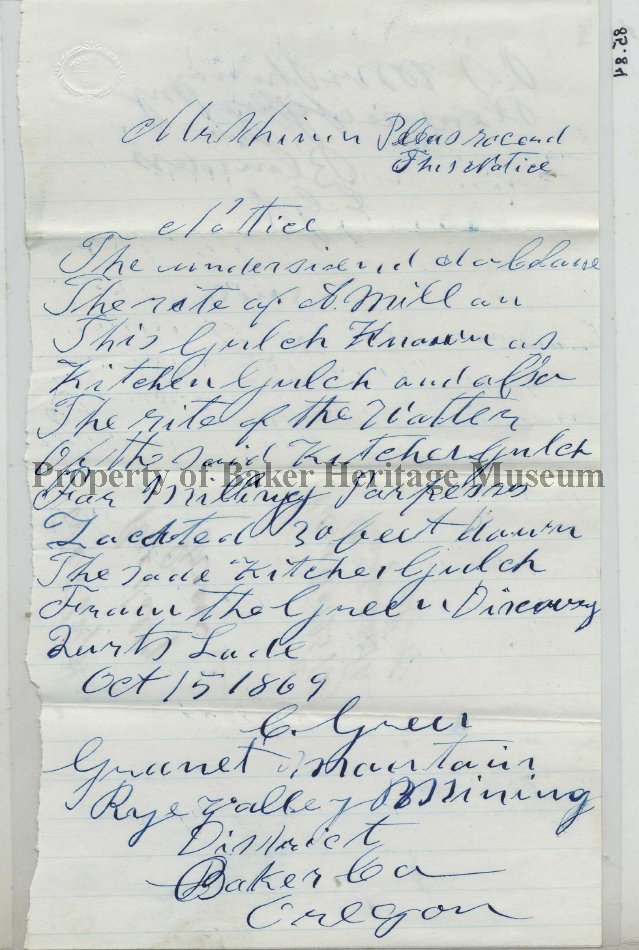 85.84
Mr Shinn Pleas racord
This Notice
Notice
The undersiend do Clame
The rite of A Mill on
This Gulch Known as
Kitchen Gulch and also
The rite of the Watter
Of the said Kitchen Gulch
Property of Baker Heritage Museum
For Milling Parpess
Lacated 30 feet down
The sade Kitchen Gulch
From the Green Discovry
Qurts Lode
Oct 15 1869
C. Green
Granet Mountain
Rye Valley Mining
District
Baker Co
Oregon